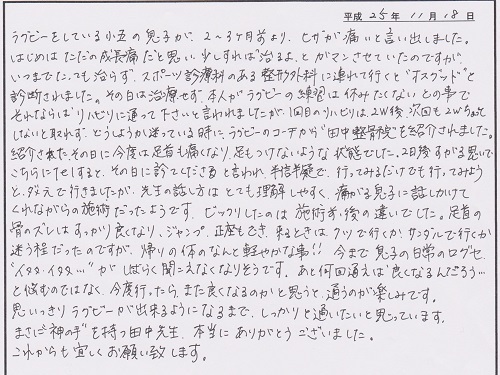 平成 25年 11月 18日
ラグビーをしている小五の息子が、2〜3ヶ月前より、ヒザが痛いと言い出しました。
はじめはただの成長痛だと思い、少しすれば"治るよ、とガマンさせていたのですが、
いつまでたっても治らず、スポーツ診療科のある整形外科に連れて行くと"オスグッド"と
診断されました。その日は治療せず、本人がラグビーの練習は休みたくないとの事で
それならば"リハビリに通って下さいと言われましたが、1回目のリハビリは2W後、次回も2Wちょっと
しないと取れず、どうしようか迷っている時に、ラグビーのコーチから"田中整骨院"を紹介されました。
紹介された、その日に今度は足首も痛くなり、足もつけないような状態でした。2日後すがる思いで
こちらにTelすると、その日に診てくださると言われ、半信半疑で、行ってみるだけでも行ってみよう
と、ダメ元で行きましたが、先生の話し方はとても理解しやすく、痛がる息子に話しかけて
くれながらの施術だったようです。ビックリしたのは施術前・後の違いでした。足首の
骨のズレはすっかり良くなり、ジャンプ、正座もでき、来るときは、クツで行くか、サンダルで行くか
迷う程だったのですが、帰りの体のなんと軽やかな事!! 今まで息子の日常のログセ、
"イタタ・イタタ…"が しばらく聞こえなくなりそうです。あと何回通えば"良くなるんだろう…
と悩むのではなく、今度行ったら、また良くなるのかと思うと、通うのが楽しみです。
思いっきりラグビーが出来るようになるまで、しっかりと通いたいと思っています。
まさに"神の手"を持つ田中先生、本当にありがとうございました。
これからも宜しくお願い致します。